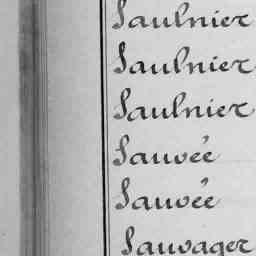 Saulnier
Saulnier
Saulnier
Sauvée
Sauvée
Sauvager